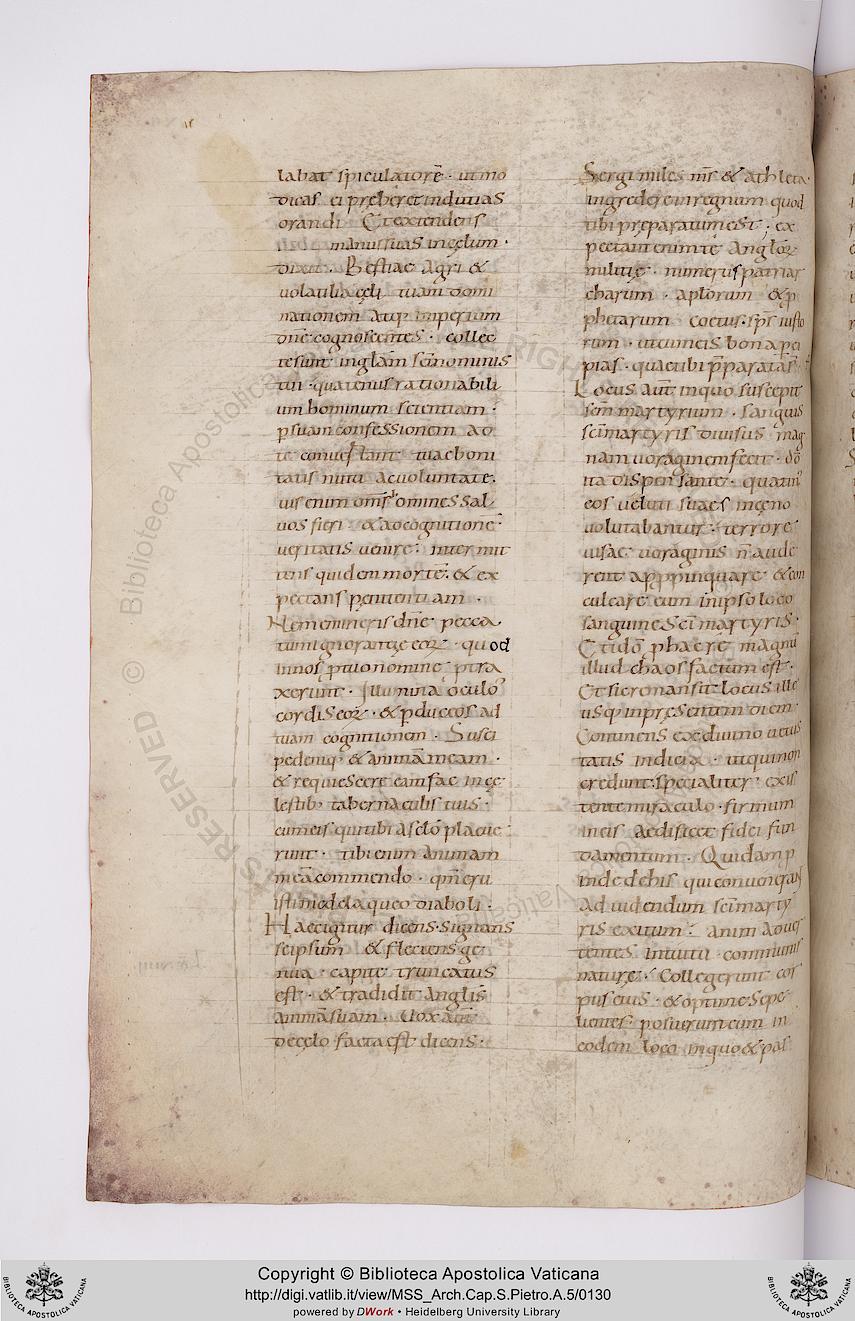 labat spiculatorē · ut mo
dicas ei pręberet indutias
orandi · Et extendens
manus suas in cęlum ·
dixit · Bestiae agri &
uolatilia cęli tuam domi
nationem atq; imperium
dn̄e cognoscentes · collec
te sunt in gl̄am sc̄i nominis
tui · quatenus rationabili
um hominum scientiam ·
p suam confessionem ad
te conuertant tua e boni
tatis nutu ac uoluntate ·
uis enim om̄s homines sal
uos fieri · & ad cognitionē
ueritatis uenire · inter mit
tens quidem mortē · & ex
pectans penitentiam ·
Ne memineris dn̄e pecca
tum ignorantię eoꝝ · quod
in nos p tuo nomine ptra
xerunt · Illumina oculos
cordis eoꝝ · & pduc eos ad
tuam cognitionem · Susci
pe deniq; & animā meam ·
& requiescere eam fac in cę
lestib; tabernaculis tuis ·
cum eis qui tibi a sclo placue
runt · tibi enim animam
meā commendo · qm̄ eru
isti me de laqueo diaboli ·
Haec igitur dicens · signans
se ipsum & flectens ge
nua · capite truncatus
est · & tradidit anglis
animā suam · Uox aut̄
de cęlo facta est dicens ·
Sergi miles m̄s & athleta ·
ingredere in regnum quod
tibi pręparatum est ; ex
pectant enim te angloꝝ
militię · numerus patriar
charum · aplorum & p
phetarum coetus · sp̄s iusto
rum · ut cum eis bona pci
pias · quae tibi p̄parata s̄
Locus aut̄ in quo suscepit
sc̄m martyrium · sanguis
sc̄i martyris diuisus mag
nam uoraginem fecit · dō
ita dispensante · quatin'
eos ueluti sues in cęno
uolutabantur · terrore
uisae uoraginis n̄ aude
rent appropinquare & con
culcare eum in ipso loco
sanguinē sc̄i martyris ·
Et idō phaere magnū
illud chaos factum est ·
Et sic remansit locus ille
usq; in presentem diem ·
Continens ex diuino uetus
tatis indicia · ut qui non
credunt · specialiter exis
tente miraculo · firmum
in eis aedificet fidei fun
damentum · Quidam p
inde de his qui conuenerant
ad uidendum sc̄i marty
ris exitum · animaduer
tentes intuitu communis
naturę · Collegerunt cor
pus eius · & optime sepe
lientes posuerunt eum in
eodem loco in quo & pas
Copyright © Biblioteca Apostolica Vaticana
http://digi.vatlib.it/view/MSS_Arch.Cap.S.Pietro.A.5/0130
powered by DWork • Heidelberg University Library